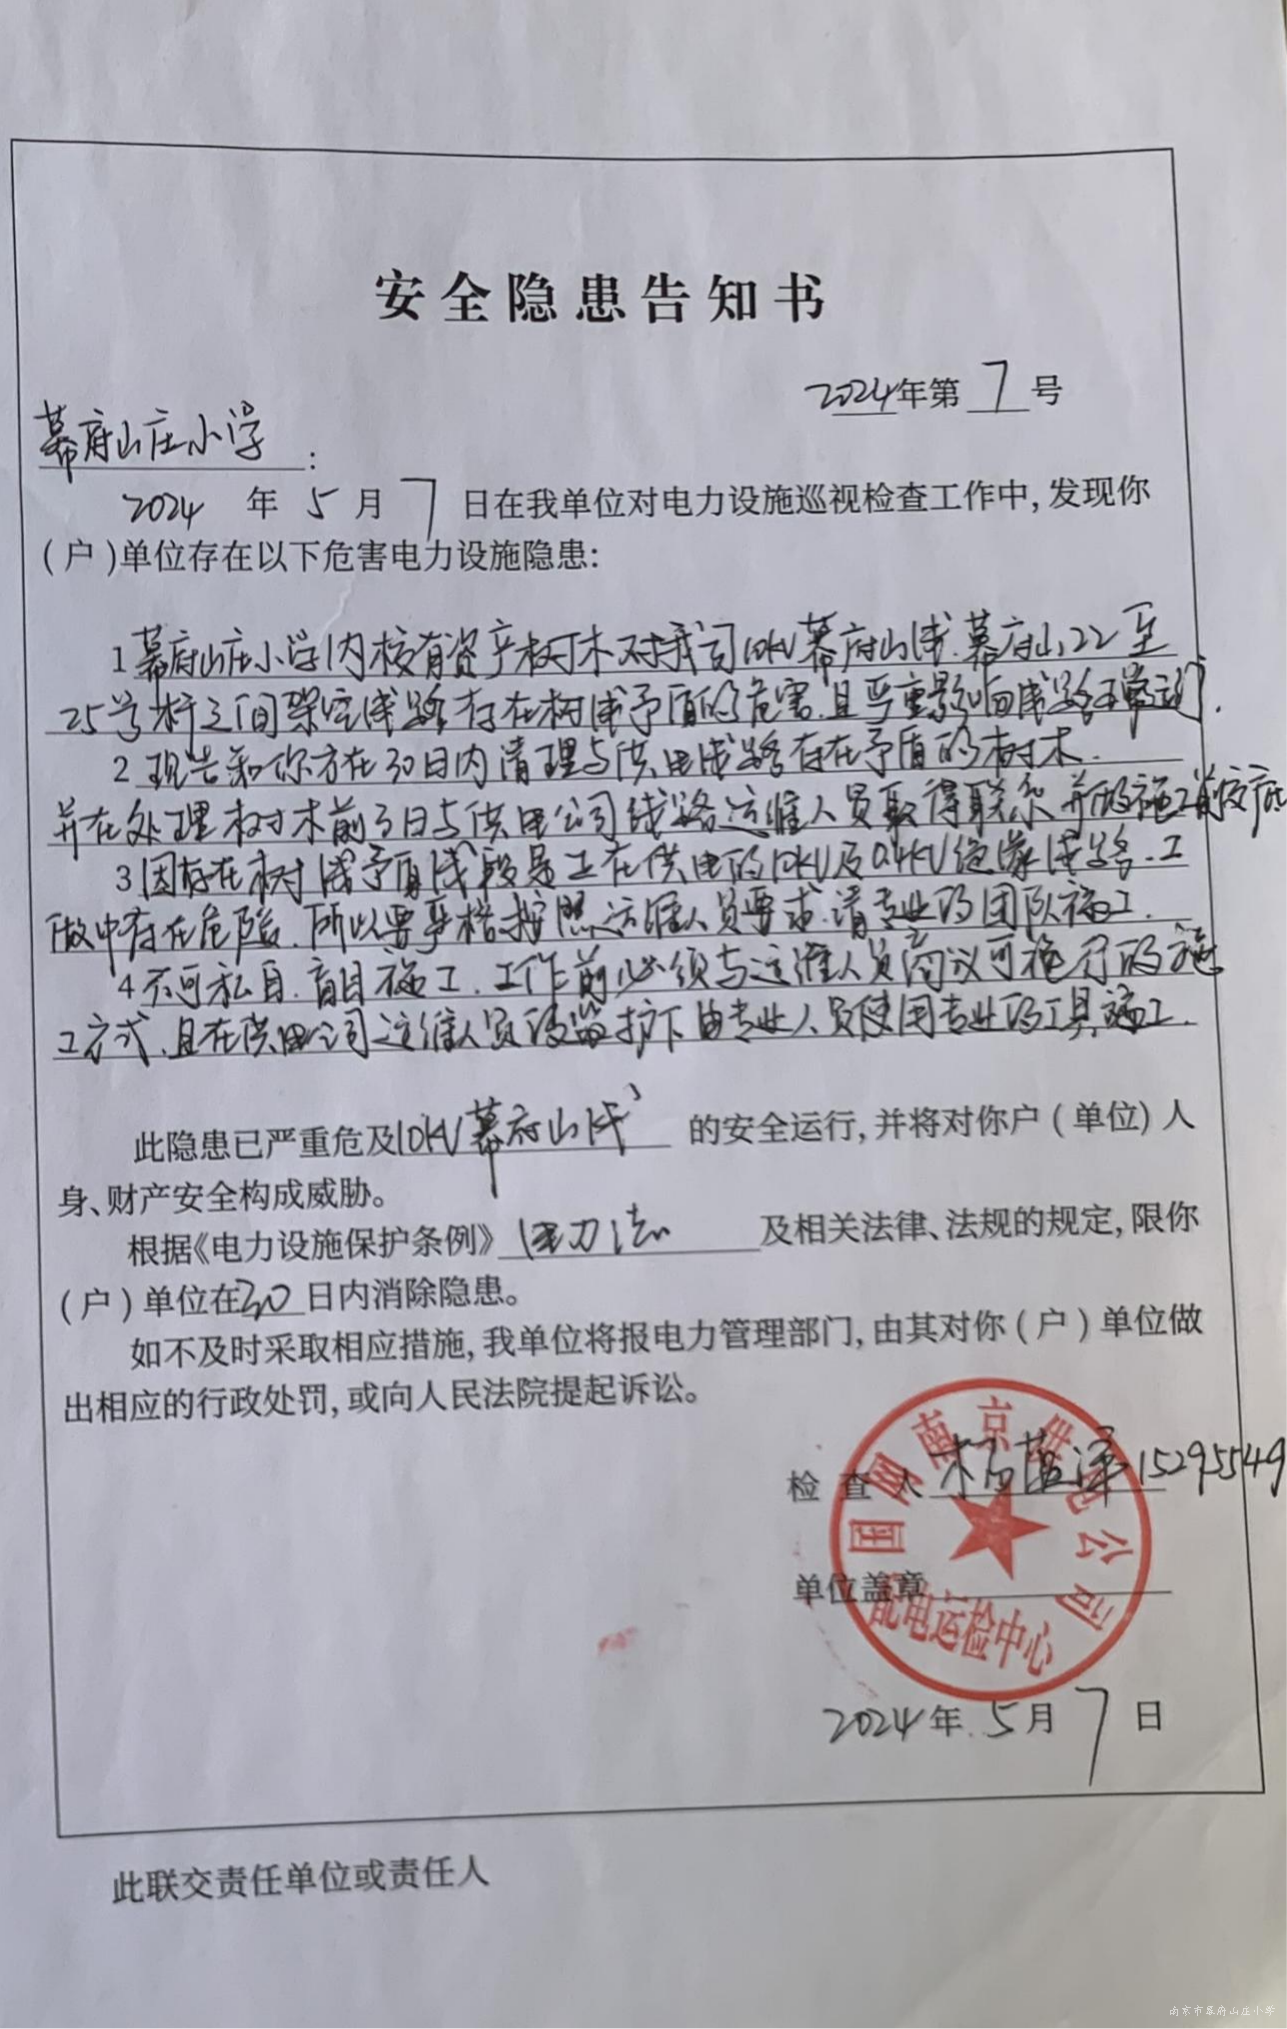 安全隐患告知书
2024年第 7 号
幕府山庄小学：
2024 年 5 月 7 日在我单位对电力设施巡视检查工作中，发现你
（户）单位存在以下危害电力设施隐患：
1 幕府山庄小学内校有资产树木对我司10KV幕府山线.幕府山22至
25号杆之间架空线路存在树线矛盾的危害.且严重影响线路正常运行.
2 现告知你方在30日内清理与供电线路存在矛盾的树木.
并在处理树木前3日与供电公司线路运维人员取得联系并做施工前交底
3 因存在树线矛盾线段是正在供电的10KV及0.4KV绝缘线路.工
做中存在危险.所以要严格按照运维人员要求.请专业的团队施工.
4 不可私自.盲目施工.工作前必须与运维人员商议可施行的施
工方式.且在供电公司运维人员的监护下由专业人员使用专业的工具施工.
此隐患已严重危及10KV幕府山线 的安全运行，并将对你户（单位）人
身、财产安全构成威胁。
根据《电力设施保护条例》 电力法 及相关法律、法规的规定，限你
（户）单位在30日内消除隐患。
如不及时采取相应措施，我单位将报电力管理部门，由其对你（户）单位做
出相应的行政处罚，或向人民法院提起诉讼。
检 查 人 杨 15295549
单位盖章
国网南京供电公司
配电运检中心
2024年 5月 7 日
此联交责任单位或责任人
南京市幕府山庄小学